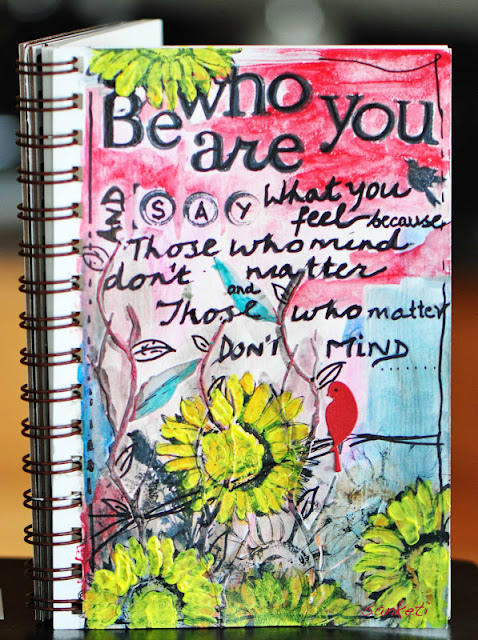 Be who you
are
AND SAY What you
feel because
Those who mind
don't matter
and
Those who matter
DON'T MIND
Sanketi